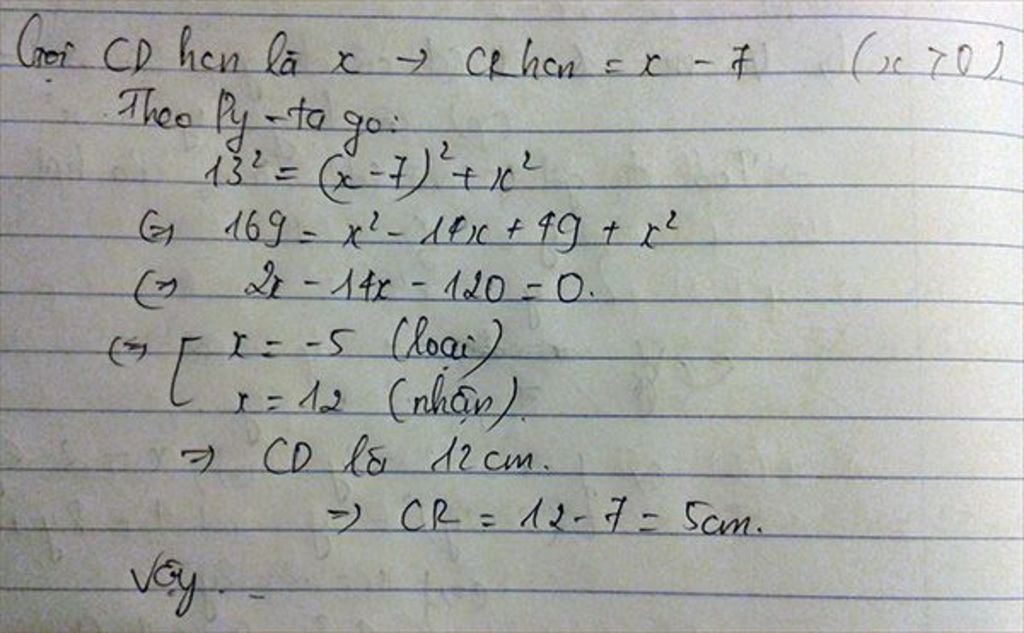 Gọi CD hcn là x → CR hcn = x - 7 (x > 0)
Theo Py-ta go:
13² = (x-7)² + x²
⇔ 169 = x² - 14x + 49 + x²
⇔ 2x - 14x - 120 = 0.
⇔ [ x = -5 (loại)
x = 12 (nhận).
⇒ CD là 12 cm.
⇒ CR = 12 - 7 = 5cm.
Vậy . _